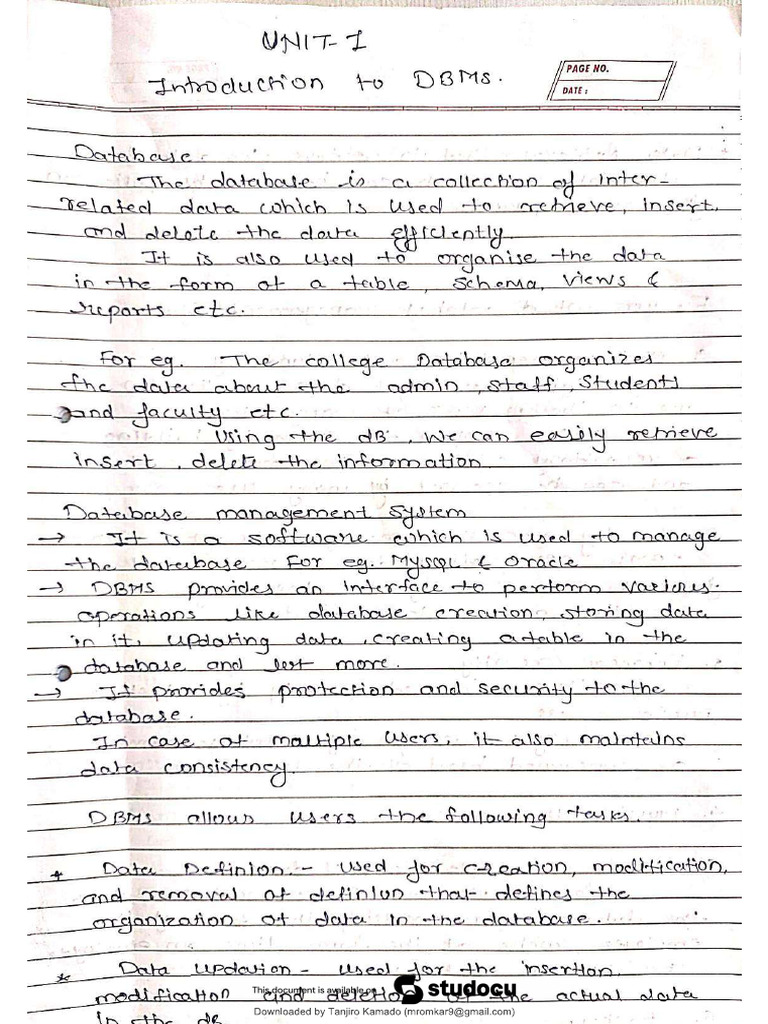 UNIT-I
Introduction to DBMS.
PAGE NO.
DATE:
Database.
The database is a collection of inter-
related data which is used to retrieve, insert,
and delete the data efficiently.
It is also used to organise the data
in the form of a table, schema, views &
reports etc.
For eg. The college Database organizes
the data about the admin, staff, students
and faculty etc.
Using the dB, we can easily retrieve
insert, delete the information.
Database management System
→ It is a software which is used to manage
the database For eg. MySQL & Oracle
→ DBMS provides an interface to perform various
operations like database creation, storing data
in it, updating data, creating a table in the
database and lot more.
→ It provides protection and security to the
database.
In case of multiple users, it also maintains
data consistency.
DBMS allows users the following tasks.
* Data Definion - used for creation, modification,
and removal of definion that defines the
organization of data in the database.
* Data Updation - used for the insertion,
modification and deletion of the actual data
in the dB
This document is available on studocu
Downloaded by Tanjiro Kamado (mromkar9@gmail.com)